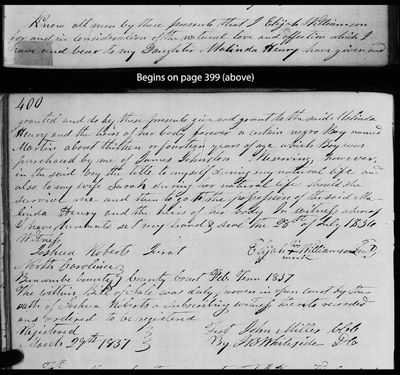 Know all men by these presents that I Elijah Williamson
for and in consideration of the natural love and affection which I
have and bear to my Daughter Malinda Henry have given and
Begins on page 399 (above)
400
granted and do by these present give and grant to the said Malinda
Henry and the heirs of his body forever a certain negro Boy named
Martin about thirteen or fourteen years of age which Boy was
purchased by me of James Johnston Reserving, however,
in the said boy the title to myself during my natural life and
also to my wife Sarah during her natural life should she
survive me and then to go to the possession of the said Ma-
linda Henry and the heirs of her body In witness whereof
I have hereunto set my hand & seal the 28th of July 1836
Witness
Joshua Roberts Jurat Elijah his Williamson Seal
mark
North Carolina
Buncombe County County Court Feb. Term 1837
The within Bill of Sale was duly proven in open court by the
oath of Joshua Roberts a subscribing witness thereto recorded
and ordered to be registered
Registered Test John Miller Clk
March 29th 1837 By Whiteside DC